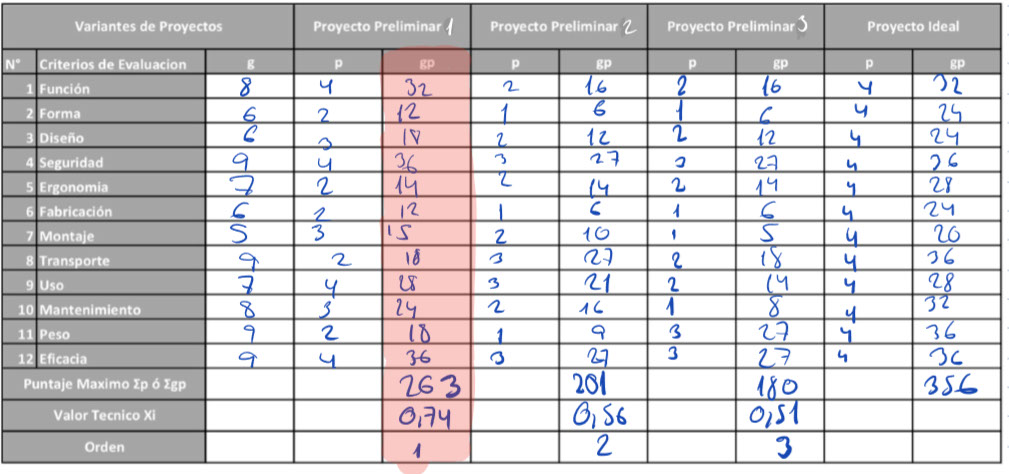 Variantes de Proyectos Proyecto Preliminar 1 Proyecto Preliminar 2 Proyecto Preliminar 3 Proyecto Ideal
N° Criterios de Evaluacion g p gp p gp p gp p gp
1 Función 8 4 32 2 16 2 16 4 32
2 Forma 6 2 12 1 6 1 6 4 24
3 Diseño 6 3 18 2 12 2 12 4 24
4 Seguridad 9 4 36 3 27 3 27 4 36
5 Ergonomia 7 2 14 2 14 2 14 4 28
6 Fabricación 6 2 12 1 6 1 6 4 24
7 Montaje 5 3 15 2 10 1 5 4 20
8 Transporte 9 2 18 3 27 2 18 4 36
9 Uso 7 4 28 3 21 2 14 4 28
10 Mantenimiento 8 3 24 2 16 1 8 4 32
11 Peso 9 2 18 1 9 3 27 4 36
12 Eficacia 9 4 36 3 27 3 27 4 36
Puntaje Maximo Σp ó Σgp 263 201 180 356
Valor Tecnico Xi 0,74 0,56 0,51
Orden 1 2 3